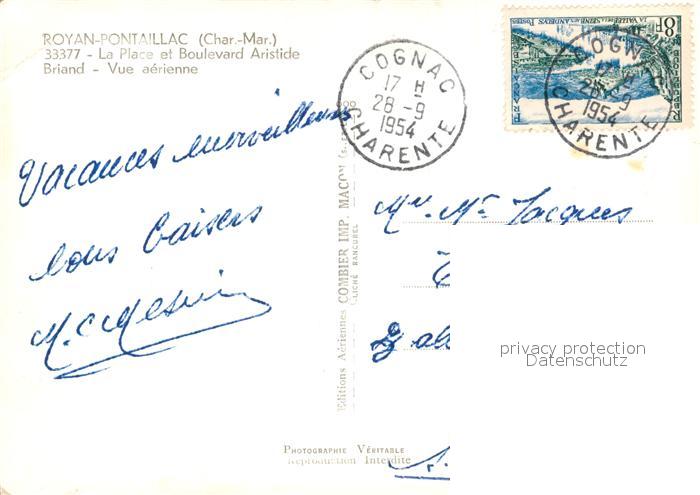 ROYAN-PONTAILLAC (Char.-Mar.)
33377 - La Place et Boulevard Aristide
Briand - Vue aérienne
COGNAC
17 H
28 -9
1954
CHARENTE
8F
LA VALLEE DE LA SEINE AUX ANDELYS
POSTES
COGNAC
28 -9
1954
CHARENTE
Vacances merveilleuses
bons baisers
Jacques
Editions Aériennes COMBIER IMP. MACON
CLICHÉ RANCUREL
privacy protection
Datenschutz
PHOTOGRAPHIE VÉRITABLE
Reproduction Interdite